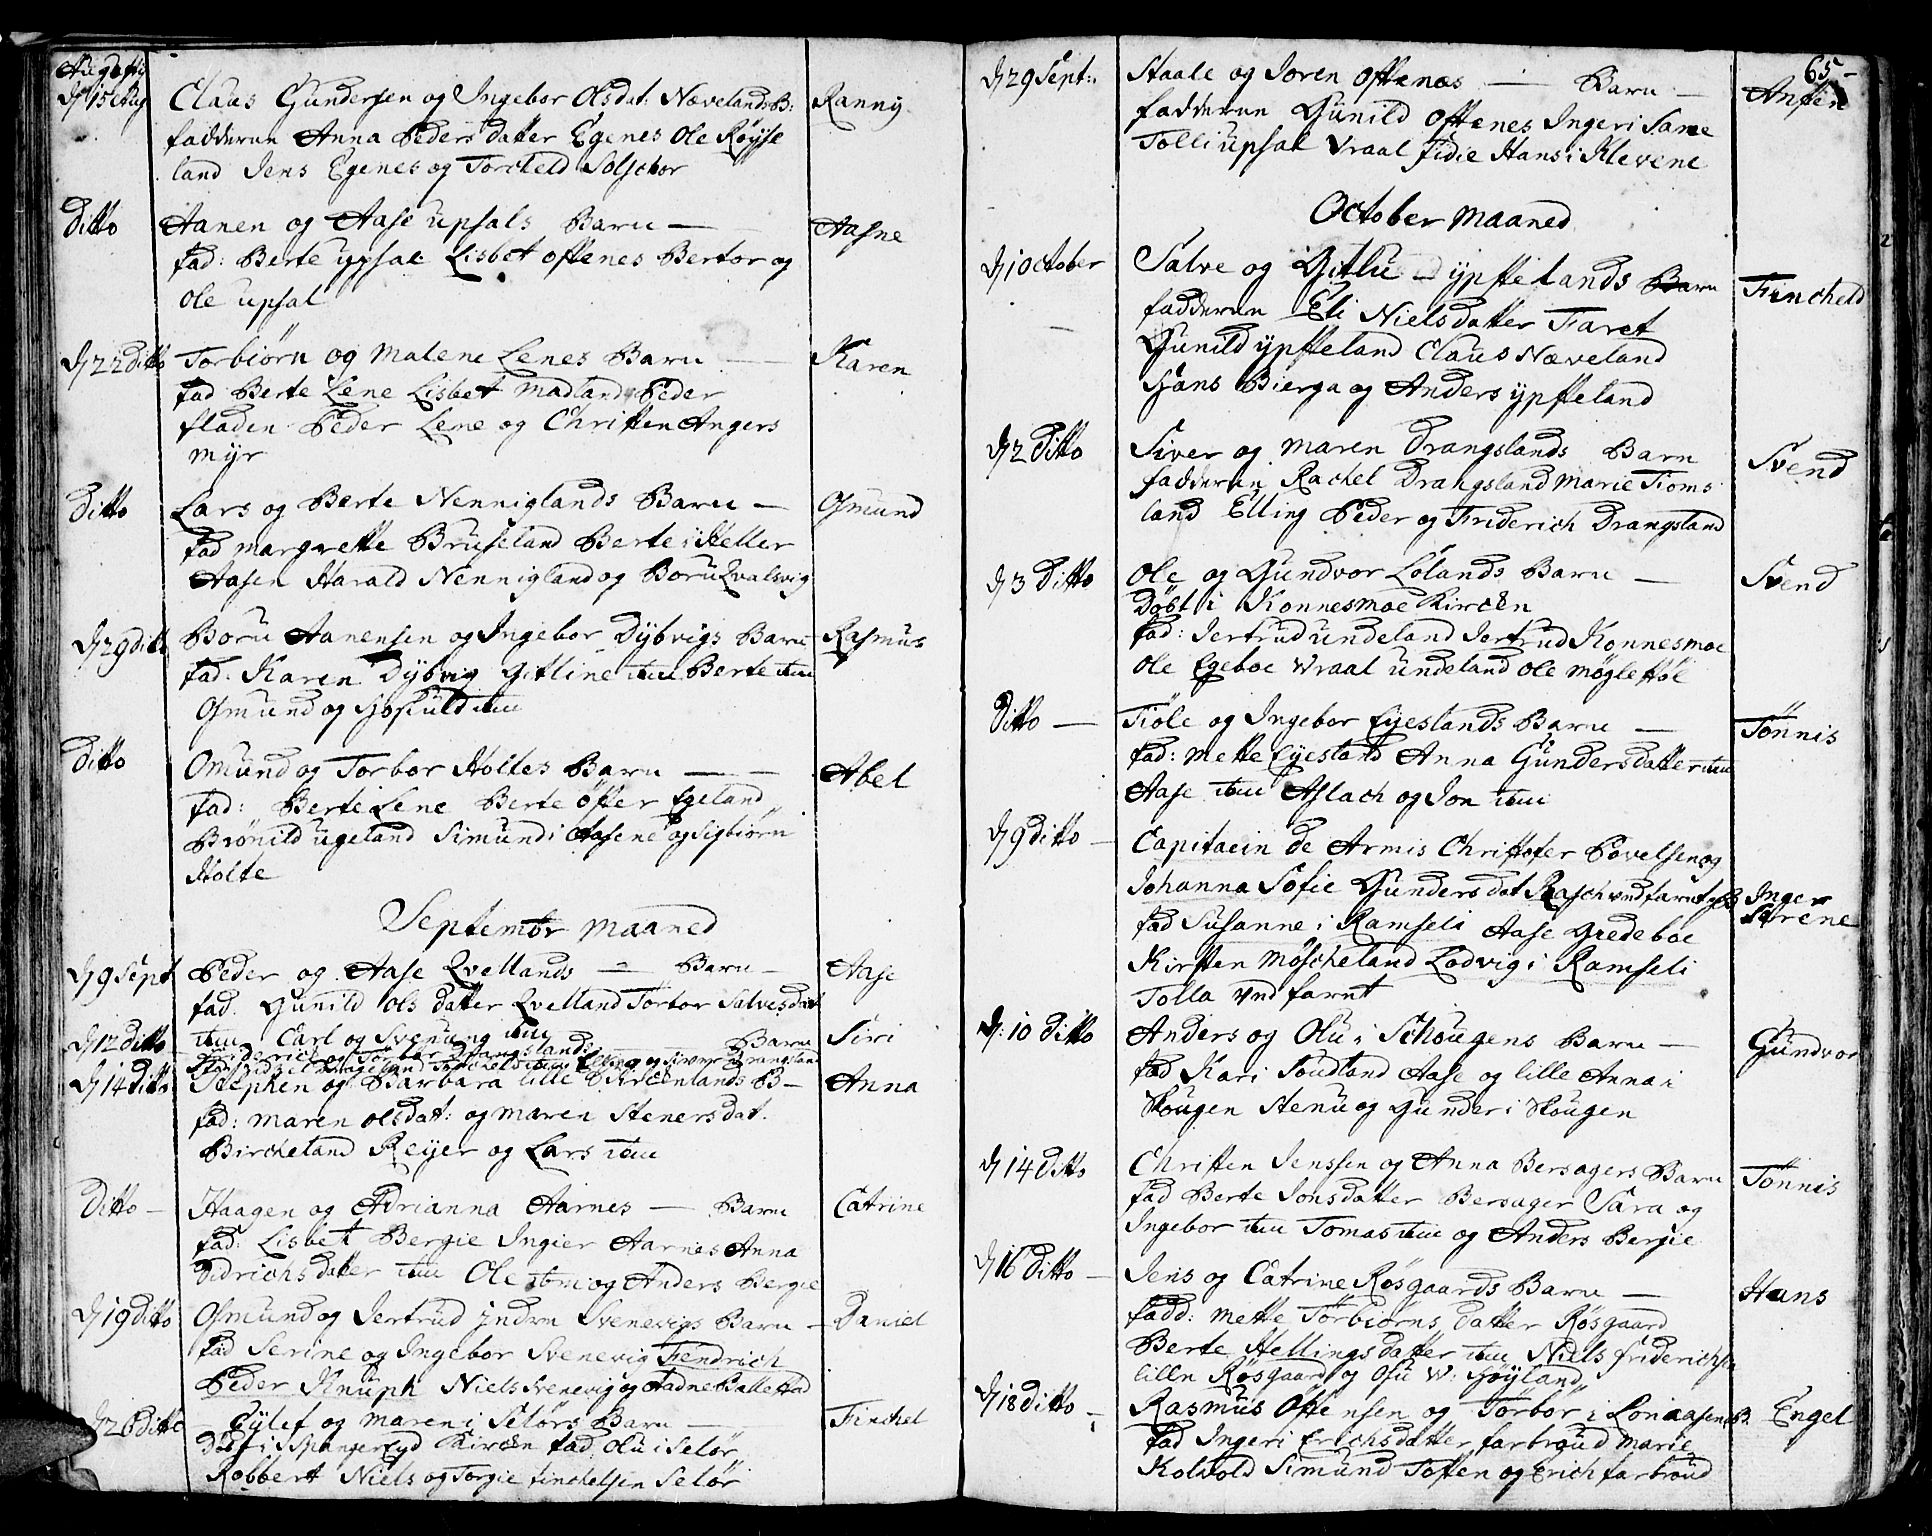 Augusti
d 15 Aug Claus Gundersen og Ingebor Olsdat: Nævelands B: Ranny
fadderne Anna Peders datter Egenes Ole Røyse
land Jens Egenes og Torcheld Solschor
Ditto Aanen og Aase upsals Barn — Aasne
fad: Berte upsal Lisbet offenes Bertor og
Ole upsal
d 22 ditto Torbiørn og Malene Lenes Barn — Karen
fad Berte Lene Lisbet Madland Peder
fladen Peder Lene og Christen Angers
myr
Ditto Lars og Berte Nenniglands Barn — Osmund
fad margrette Bruseland Berte i Heller
Aasen Harald Nennigland og Boru Qvalsvig
d 29 ditto Boru Aanensen og Ingebor Dybvigs Barn Rasmus
fad. Karen Dybvig Gitline ibm Berte ibm
Osmund og Hoskuld ibm
Ditto Omund og Torbor Holtes Barn — Abel
fad: Berte Lene Berte øfter Egeland
Brønild ugeland Simund i Aasene og Sigbiørn
Holte
September maaned
d 9 Sept Peder og Aase Qvellands — Barn — Aase
fad. Gunild Ols datter Qvelland Torbor Salvesdat
ibm Carl og Svenung ibm
d 12 ditto Friderich og Torbor Drangslands Barn Siri
d 14 ditto Stephen og Barbara lille Birchenlands B — Anna
fad: maren olsdat: og maren Stenersdat.
Bircheland Reyer og Lars ibm
Ditto — Haagen og Adrianna Aarnes — Barn Catrine
fad: Lisbet Bergie Ingier Aarnes Anna
Didrichsdatter ibm Ole ibm og Anders Bergie
d 19 ditto Osmund og Jertrud indre Svenevigs Barn — Daniel
fad Serine og Ingebor Svenevig Fendrich
Peder Knuph Niels Svenevig og Aadne
d 26 ditto — Eylef og maren i Selørs Barn — Finchel
Døbt i Spangereyd Kirchen fad Olu i Selør
Robbert Niels og Torgie finchelsen Selør
65
d 29 Sept: Staale og Joren offenes — Barn — Anfin
fadderne Gunild offenes Ingeri Same
Tolli upsal Vraal fidie Hans i Klevene
October maaned
d 1 October Salve og Gitlu ypstelands Barn Fincheld
fadderne Eli Nielsdatter Faret
Gunild ypsteland Claus Næveland
Hans Bierga og Anders ypsteland
d 2 Ditto Siver og maren Drangslands Barn Svend
fadderne Rachel Drangsland Marie Tioms
land Elling Peder og Friderich Drangsland
d 3 Ditto Ole og Gundvor Lølands Barn — Svend
Døbt i Konnesmoe Kirchen
fad: Jertrud undeland Jortrud Konnesmoe
Ole Egeboe Vraal undeland Ole møglestøl
Ditto — Tiøle og Ingebor Eyeslands Barn — Tønnis
fad: mette Eyesland Anna Gundersdatter ibm
Aase ibm Aslach og Jon ibm
d 9 ditto — Capitaein de Armis Christofer Povelsen og
Johanna Sofie Gundersdat Rasch Inger Serene
fad Susanne i Ramseli Aase Gredeboe
Kirsten møscheland Lodvig i Ramseli
Tolla undfarnt
d: 10 ditto Anders og Olu i Schougens Barn — Gundvor
fad Kari Foudland Aase og lille Anna i
Skougen Stenu og Gunder i Skougen
d 14 ditto Christen Jenssen og Anna Bersagers Barn Tønnis
fad Berte Jonsdatter Bersager Sara og
Ingebor ibm Tomas ibm og Anders Bergie
d 16 ditto — Jens og Catrine Røsgaards Barn — Hans
fadd: mette Torbiørns datter Røsgaard
Berte Hellingsdatter ibm Niels friderichsen
lille Røsgaard og Osu W: Høyland
d 18 ditto — Rasmus Oftensen og Torbor i Lonaasens B. Engel
fad Ingeri Erichsdatter farbroud marie
Kolvold Simund Toften og Erich farbroud